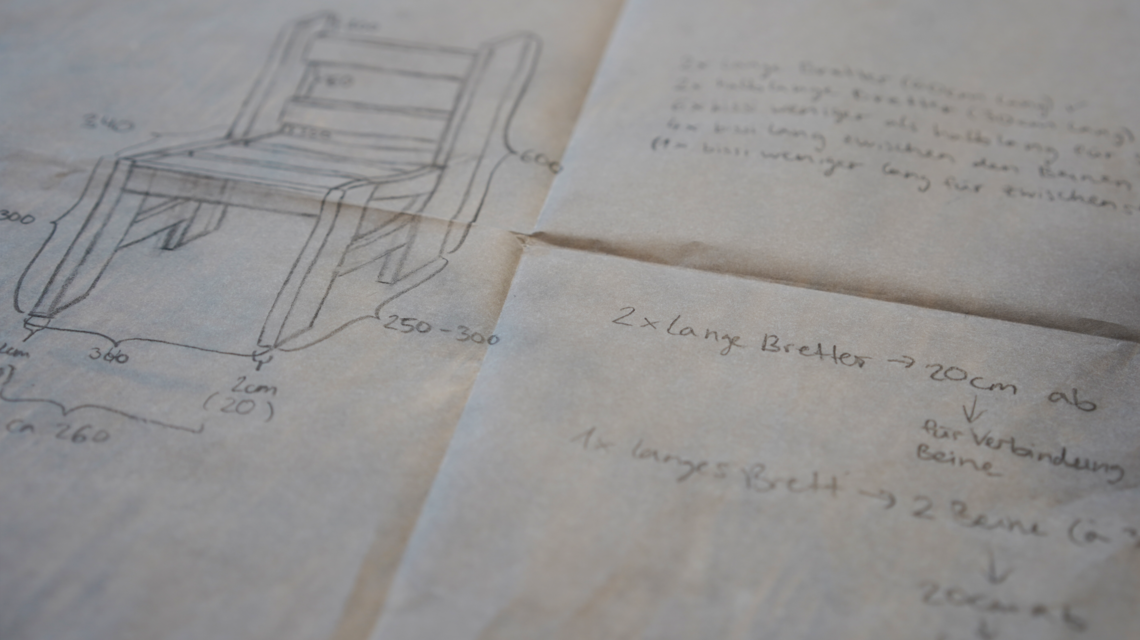 340
600
300
360
250-300
2cm
(20)
ca 260
2x lange Bretter (
2x halblange Bretter (
6x bissi weniger als halblang für
4x bissi lang zwischen den Beinen
(1x bissi weniger lang für zwischen
2x Lange Bretter → 20cm ab
↓
für Verbindung
Beine
1x langes Brett → 2 Beine (a
↓
20cm ab